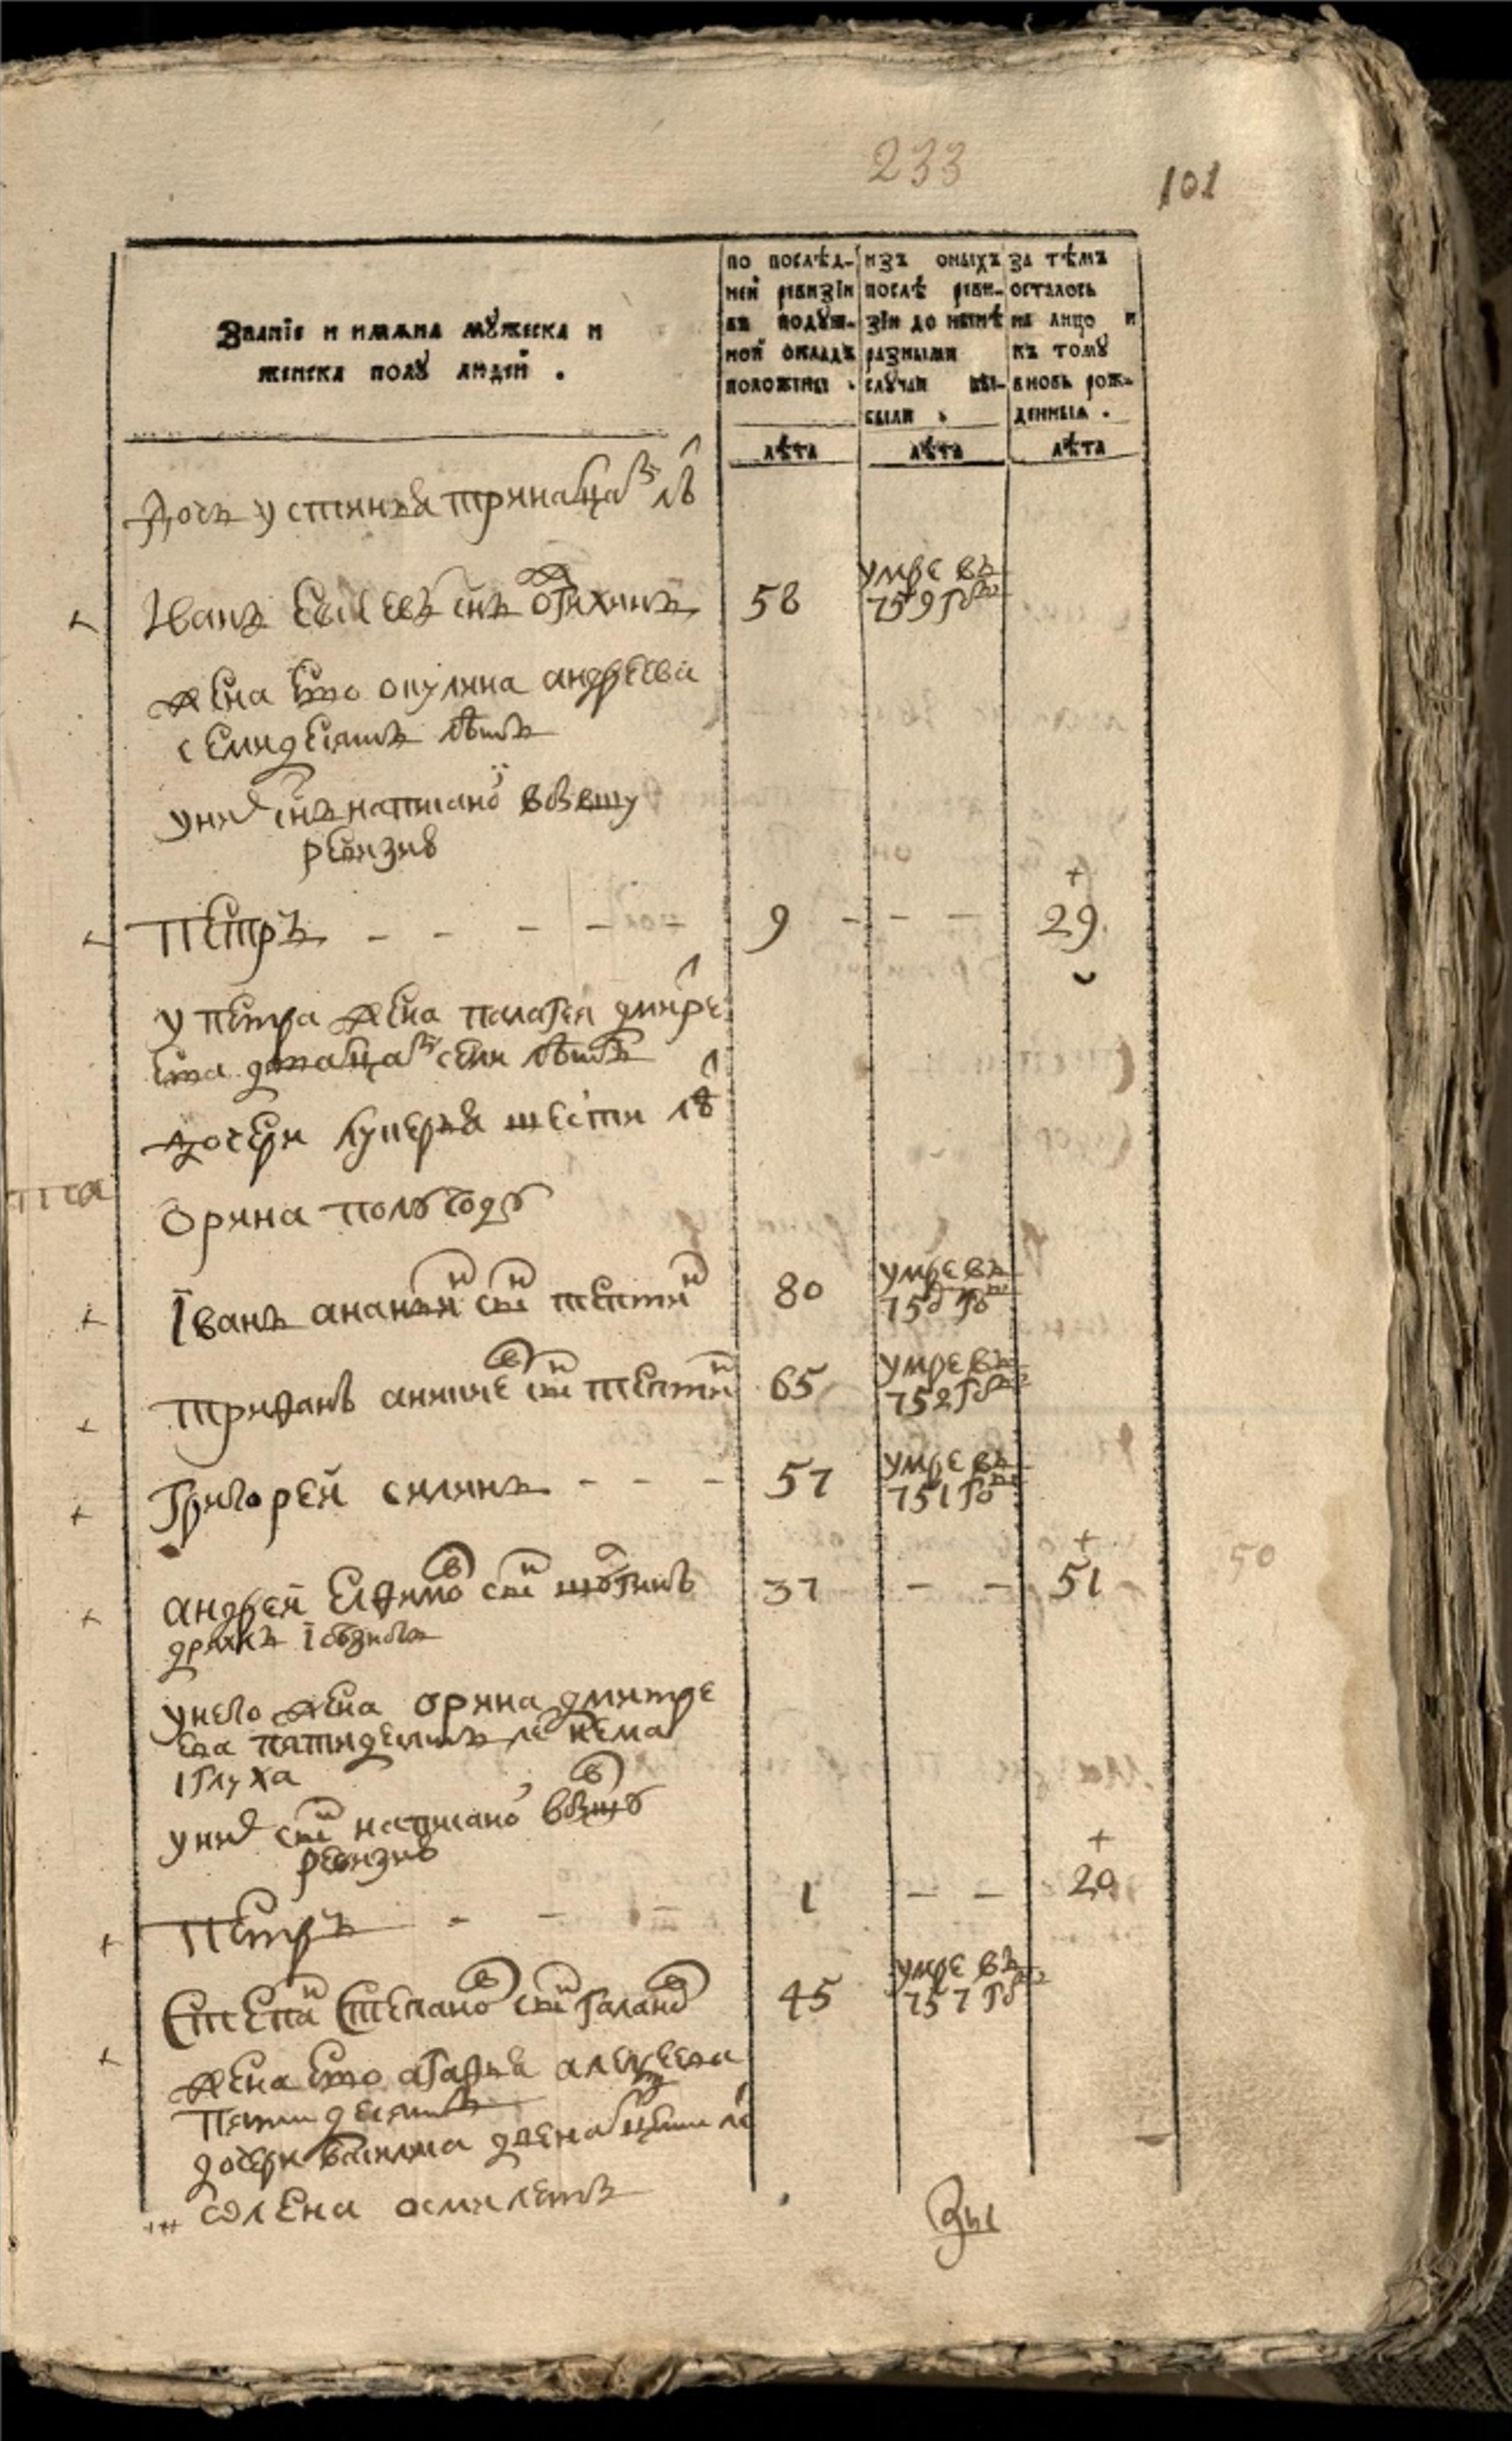 233
101
Званїе и имѧна мꙋжеска и
женска полꙋ людей .
по послѣд-
ней ревизїи
въ подꙋш-
ной окладъ
положены .
изъ оныхъ
послѣ реви-
зїи до нынѣ
разными
слꙋчаи вы-
были .
за тѣмъ
осталось
на лицо и
къ томꙋ
вновь рож-
денныѧ .
лѣта
лѣта
лѣта
Дочь устинья тринадцат лѣ
Иванъ снъ 58 умре въ
759 год
жена ево окулина андреева
семидесятъ лѣтъ
у них снъ написаной в
ревизию
Петръ - - - - 9 - - - 29
у петра жена палагея дмитре
ева дватцат семи лѣтъ
дочери лукерья шести лѣ
орина полугоду
Іванъ ананьин снъ 80 умре въ
750 год
трифанъ снъ 65 умре въ
752 год
Григорей силинъ - - - 57 умре въ
751 год
андрей елфимов снъ 37 - - 51
50
дряхлъ
у него жена орина дмитре
ева пятидесятъ ле нема
і глуха
у них снъ написаной в
ревизию
Петръ - - - 1 - - 20
Степан Степанов снъ галанов 45 умре въ
757 год
жена ево агафья алексеева
пятидесятъ
дочери василиса двенатцати ле
олена осми летъ